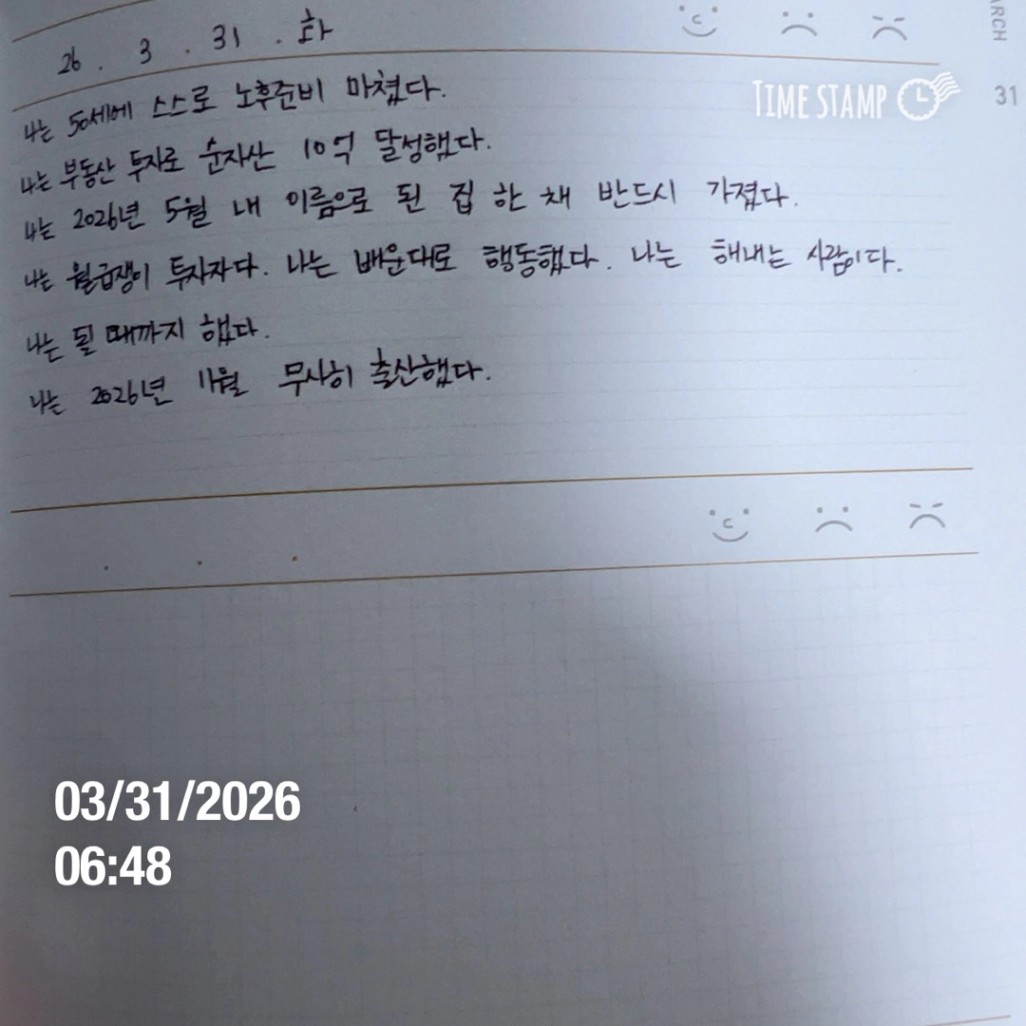 26 . 3 . 31 . 화
TIME STAMP
ARCH
31
나는 50세에 스스로 노후준비 마쳤다.
나는 부동산 투자로 순자산 10억 달성했다.
나는 2026년 5월 내 이름으로 된 집 한 채 반드시 가졌다.
나는 월급쟁이 투자자다. 나는 배운대로 행동했다. 나는 해내는 사람이다.
나는 될 때까지 했다.
나는 2026년 11월 무사히 출산했다.
03/31/2026
06:48